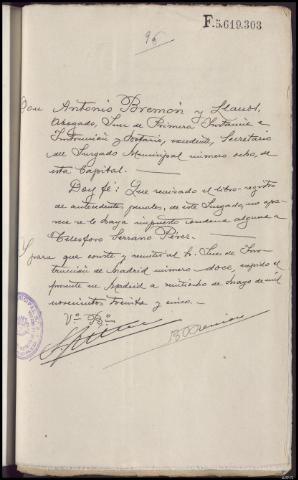 F.5.619.303
96
Don Antonio Bremón y Llanos,
Abogado, Juez de Primera Instancia e
Instrucción y Notario, excedente, Secretario
del Juzgado Municipal número ocho, de
esta Capital.
Doy fé: Que revisado el libro-registro
de antecedentes penales, de este Juzgado, no apa-
rece se le haya impuesto condena alguna a
Telesforo Serrano Pérez.
Y para que conste y remitir al Sr. Juez de Ins-
trucción de Madrid número doce, expido el
presente en Madrid a de mayo de mil
novecientos treinta y cinco.
Vº Bº
Bremón